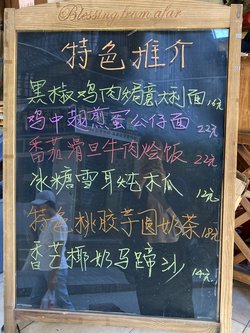 Blessing from afar
特色推介
黑椒鸡肉焗意大利面 18元
鸡中翅煎蛋公仔面 22元
番茄滑旦牛肉烩饭 22元
冰糖雪耳炖木瓜 12元
特色桃胶芋圆奶茶 18元
香芒椰奶马蹄沙 14元